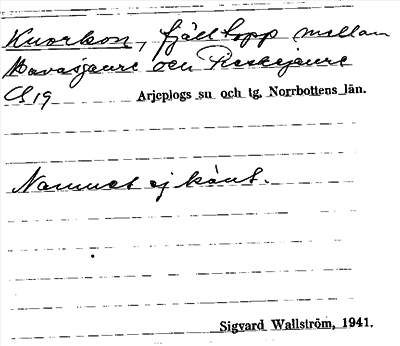 Kuorkon, fjälltopp mellan
Mavasjaure och Pieskejaure
C8 19 Arjeplogs su och tg, Norrbottens län.
Namnet ej känt.
Sigvard Wallström, 1941.